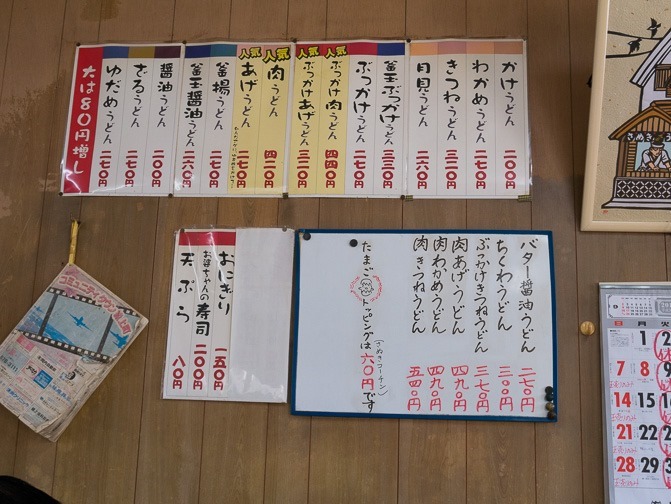 かけうどん 二〇〇円
わかめうどん 二七〇円
きつねうどん 三二〇円
月見うどん 二六〇円
釜玉ぶっかけうどん 三三〇円
ぶっかけうどん 二七〇円
人気 ぶっかけ肉うどん 四四〇円
人気 ぶっかけあげうどん 三三〇円
人気 肉うどん 四二〇円
人気 あげうどん 二七〇円
釜揚うどん 二七〇円
釜玉醤油うどん 二六〇円
醤油うどん 二〇〇円
ざるうどん 二七〇円
ゆだめうどん 二七〇円
大は80円増し
おにぎり 一五〇円
お婆ちゃんの寿司 二〇〇円
天ぷら 八〇円
バター醤油うどん 二七〇円
ちくわうどん 三〇〇円
ぶっかけきつねうどん 三七〇円
肉あげうどん 四九〇円
肉わかめうどん 四九〇円
肉きつねうどん 五四〇円
たまごトッピングは六〇円です
(さぬきコーチン)
コミュニティタウン
8
月 火
1
7 8
14 15
21 22
28 29